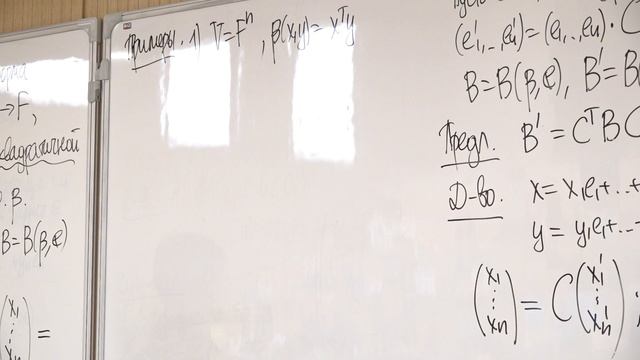 →F,
квадратичной
B=B(β,e)
(x₁
⋮
xₙ) =
Примеры. 1) V=Fⁿ, β(x,y)=xᵀy
(e₁',...,eₙ')=(e₁,...,eₙ)·C
B=B(β,e), B'=B
Предл. B'=CᵀBC
Д-во. x=x₁e₁+...+
y=y₁e₁+...
(x₁ ⋮ xₙ) = C(x₁' ⋮ xₙ') ;